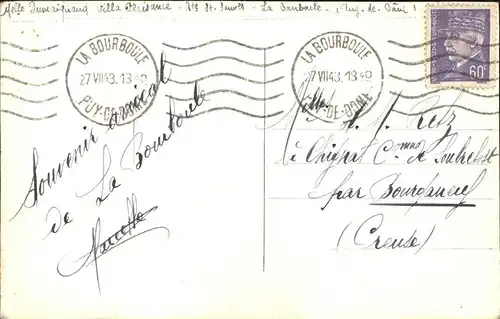 Melle Dumaignaud Villa Plaisance - Rte St. Sauves - La Bourboule - Puy-de-Dôme
LA BOURBOULE
27 VII 43. 13
PUY-DE-DOME
LA BOURBOULE
27 VII 43. 13
PUY-DE-DOME
60c
Souvenir amical
de La Bourboule
Marcelle
Melle
Retz
à Chignat Cne de St
par Bourganeuf
(Creuse)